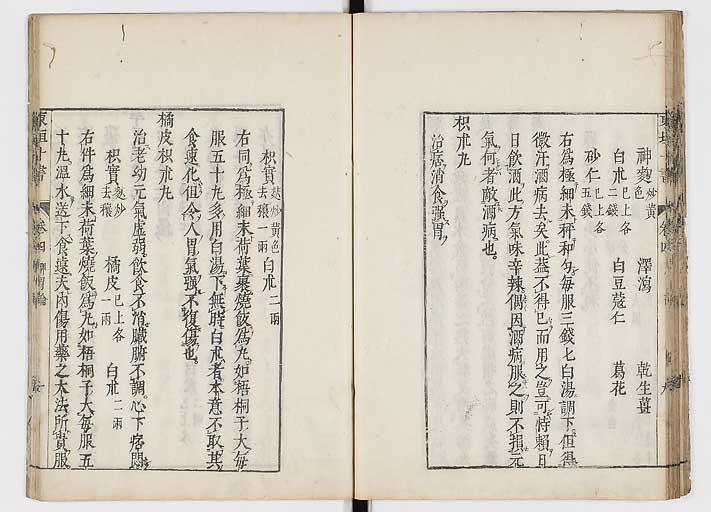 神麴炒黄色 澤瀉 乾生薑
白朮已上各二錢 白豆蔻仁 葛花
砂仁已上各五錢
右爲極細末秤和勻每服三錢匕白湯調下但得
微汗酒病去矣此蓋不得已而用之豈可恃賴日
日飲酒此方氣味辛辣偶因酒病服之則不損元
氣何者敵酒病也
枳朮丸
治痞消食强胃
枳實麩炒黄色去穰一兩 白朮二兩
右同爲極細末荷葉裹燒飯爲丸如梧桐子大每
服五十丸多用白湯下無時白朮者本意不取其
食速化但令人胃氣强不復傷也
橘皮枳朮丸
治老幼元氣虛弱飲食不消臟腑不調心下痞悶
枳實麩炒去穰 橘皮已上各一兩 白朮二兩
右件爲細末荷葉燒飯爲丸如梧桐子大每服五
十丸溫水送下食遠夫內傷用藥之大法所貴服
東垣十書 卷四